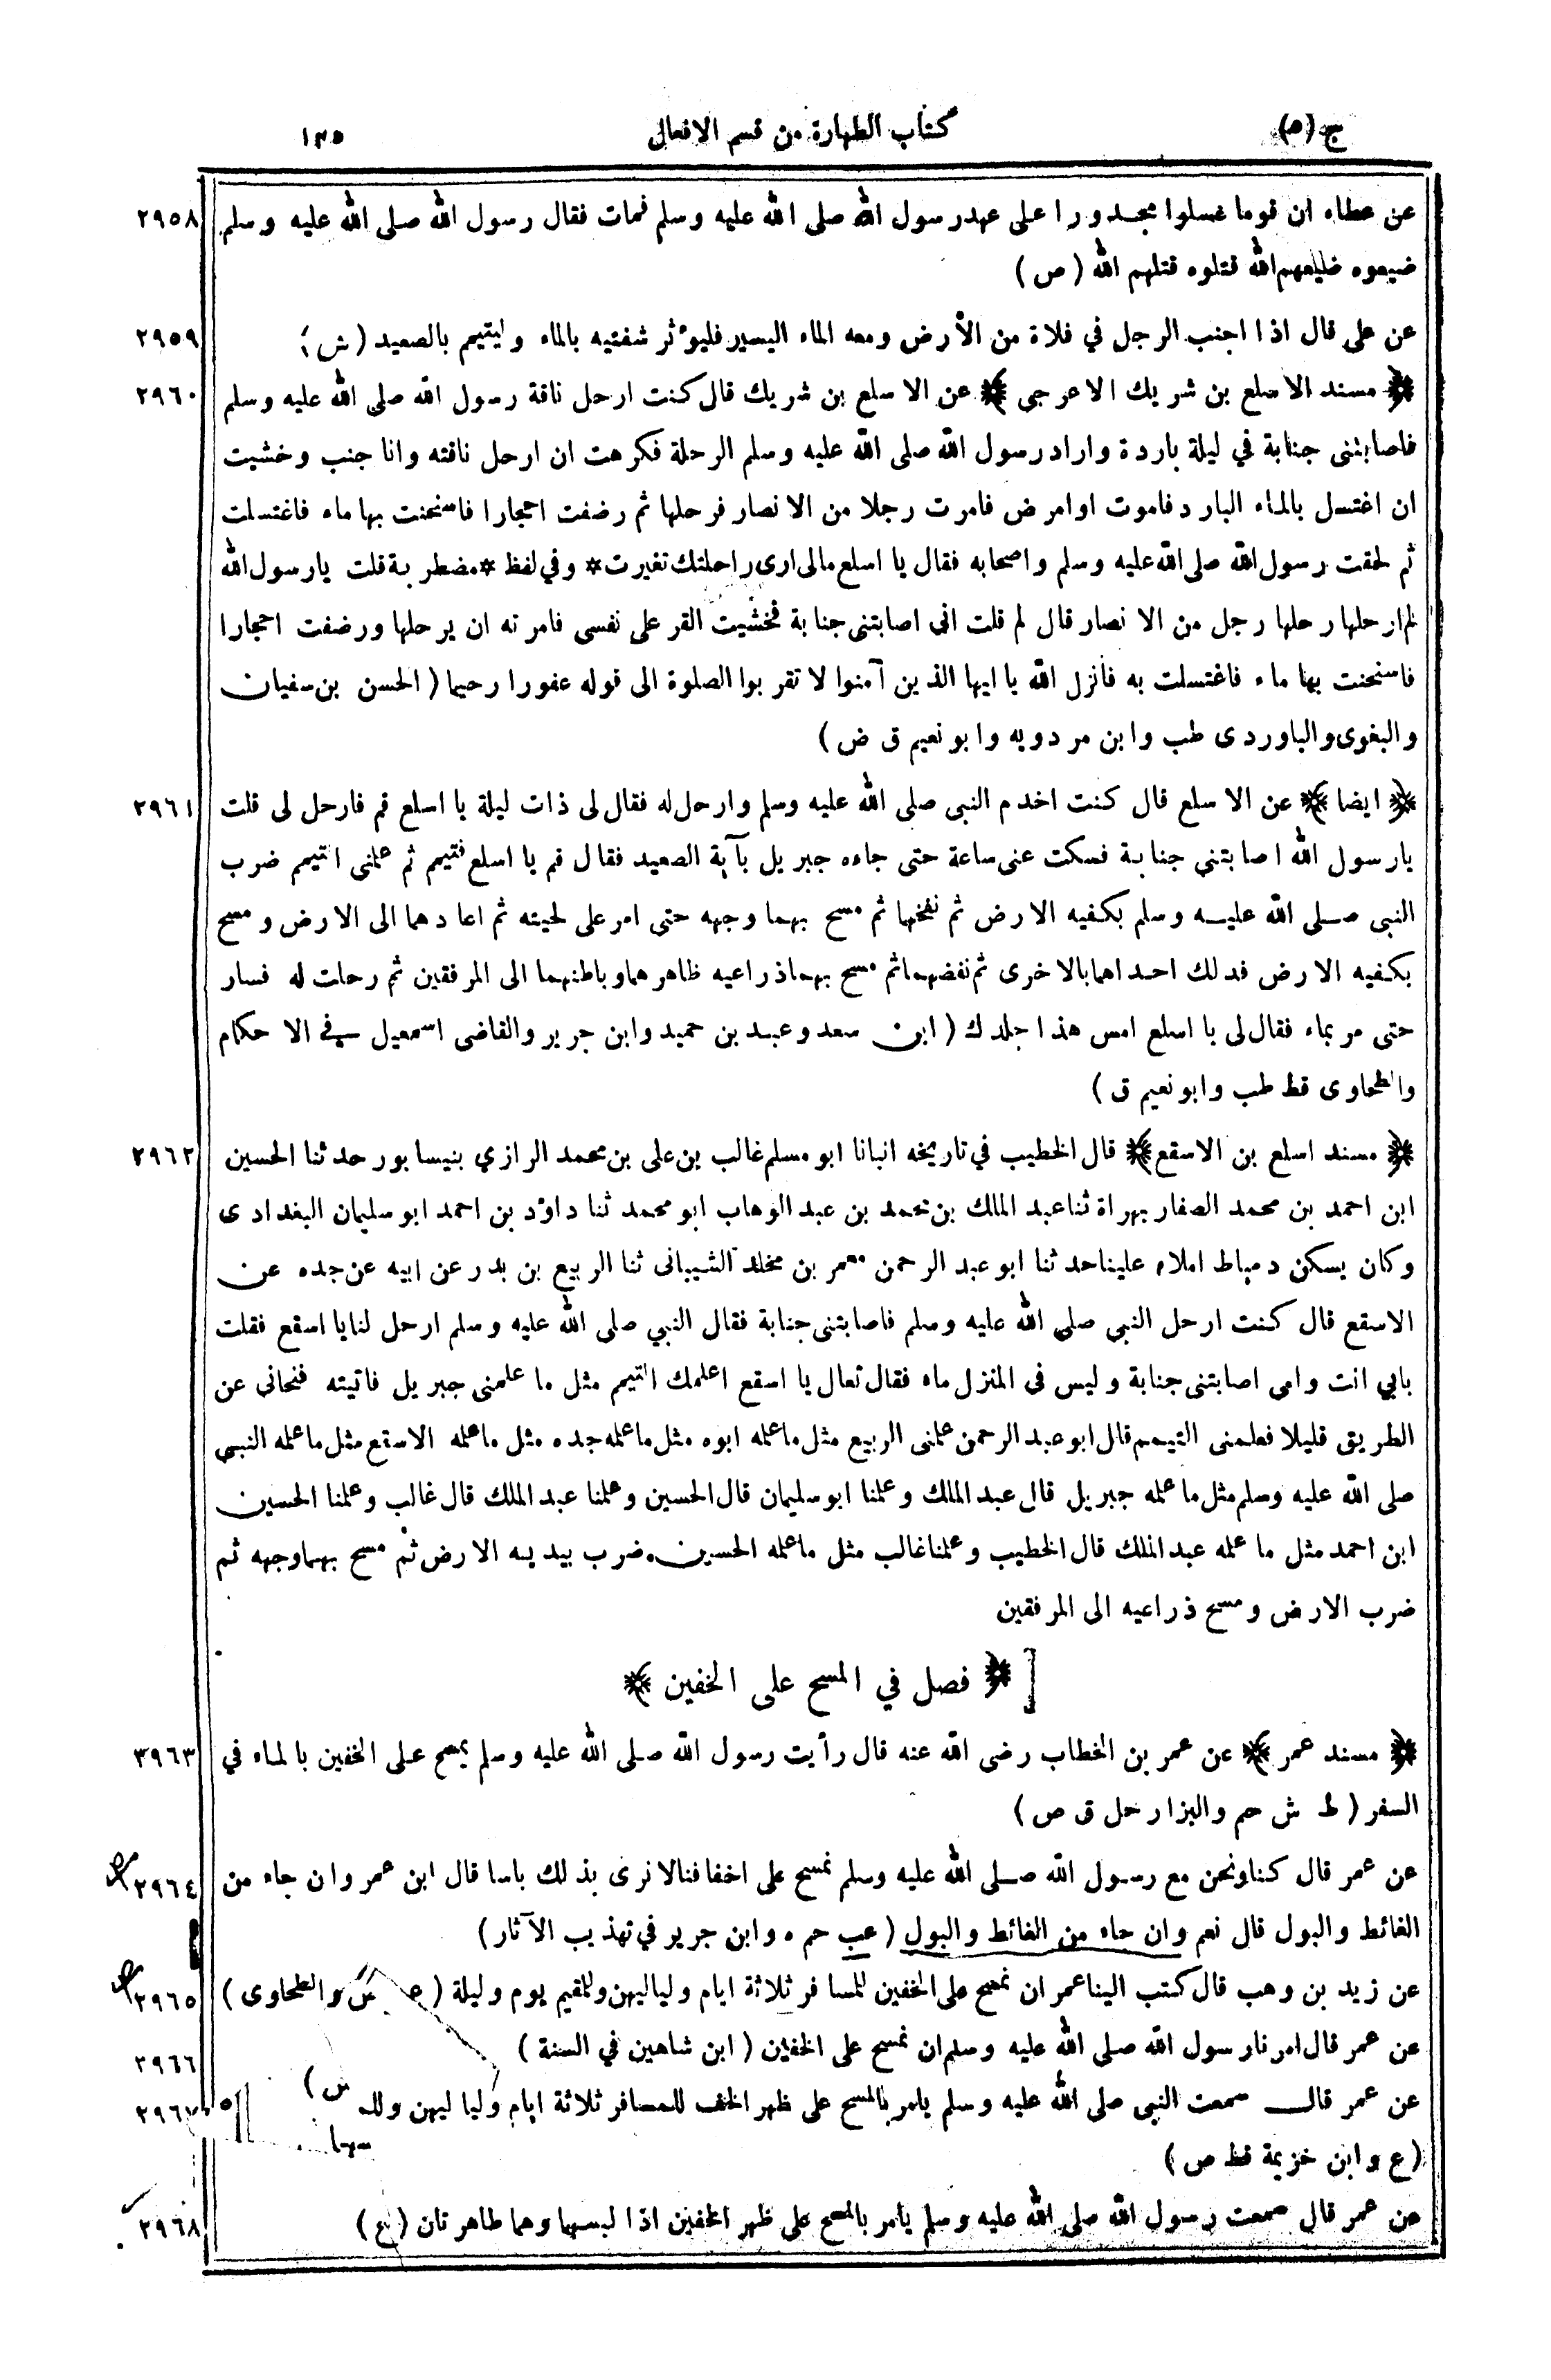 ج (٥) كتاب الطهارة من قسم الافعال ١٣٥
عن عطاء ان قوما غسلوا مجدورا على عهد رسول الله صلى الله عليه وسلم فمات فقال رسول الله صلى الله عليه وسلم ٢٩٥٨
ضيعوه ضيعهم الله قتلوه قتلهم الله ( ص )
عن على قال اذا اجنب الرجل في فلاة من الأرض ومعه الماء اليسير فليؤثر شفتيه بالماء وليتيمم بالصعيد ( ش ) ٢٩٥٩
﴿ مسند الاسلع بن شريك الاعرجى ﴾ عن الاسلع بن شريك قال كنت ارحل ناقة رسول الله صلى الله عليه وسلم ٢٩٦٠
فاصابتنى جنابة في ليلة باردة واراد رسول الله صلى الله عليه وسلم الرحلة فكرهت ان ارحل ناقته وانا جنب وخشيت
ان اغتسل بالماء البارد فاموت او امرض فامرت رجلا من الانصار فرحلها ثم رضفت احجارا فاسخنت بها ماء فاغتسلت
ثم لحقت رسول الله صلى الله عليه وسلم واصحابه فقال يا اسلع مالى ارى راحلتك تغيرت * وفي لفظ * مضطربة قلت يارسول الله
لم ارحلها رحلها رجل من الانصار قال لم قلت انى اصابتنى جنابة فخشيت القر على نفسى فامرته ان يرحلها ورضفت احجارا
فاسخنت بها ماء فاغتسلت به فأنزل الله يا ايها الذين آمنوا لا تقربوا الصلوة الى قوله عفورا رحيما ( الحسن بن سفيان
والبغوى والباوردى طب وابن مردويه وابو نعيم ق ض )
﴿ ايضا ﴾ عن الاسلع قال كنت اخدم النبى صلى الله عليه وسلم وارحل له فقال لى ذات ليلة يا اسلع قم فارحل لى قلت ٢٩٦١
يارسول الله اصابتني جنابة فسكت عنى ساعة حتى جاءه جبريل بآية الصعيد فقال قم يا اسلع فتيمم ثم علمنى التيمم ضرب
النبى صلى الله عليه وسلم بكفيه الارض ثم نفخها ثم مسح بهما وجهه حتى امر على لحيته ثم اعادهما الى الارض ومسح
بكفيه الارض فدلك احداهما بالاخرى ثم نفضهما ثم مسح بهما ذراعيه ظاهرهما وباطنهما الى المرفقين ثم رحلت له فسار
حتى مر بماء فقال لى يا اسلع امس هذا جلدك ( ابن سعد وعبد بن حميد وابن جرير والقاضى اسمعيل في الاحكام
والطحاوى قط طب وابو نعيم ق )
﴿ مسند اسلع بن الاسقع ﴾ قال الخطيب في تاريخه انبانا ابو مسلم غالب بن على بن محمد الرازي بنيسابور حدثنا الحسين ٢٩٦٢
ابن احمد بن محمد الصفار بهراة ثنا عبد الملك بن محمد بن عبد الوهاب ابو محمد ثنا داؤد بن احمد ابو سليمان البغدادى
وكان يسكن دمياط املاء علينا حدثنا ابو عبد الرحمن معمر بن مخلد الشيبانى ثنا الربيع بن بدر عن ابيه عن جده عن
الاسقع قال كنت ارحل النبي صلى الله عليه وسلم فاصابتنى جنابة فقال النبي صلى الله عليه وسلم ارحل لنا يا اسقع فقلت
بابي انت وامى اصابتنى جنابة وليس فى المنزل ماء فقال تعال يا اسقع اعلمك التيمم مثل ما علمنى جبريل فاتيته فنحانى عن
الطريق قليلا فعلمنى التيمم قال ابو عبد الرحمن علمنى الربيع مثل ما علمه ابوه مثل ما علمه جده مثل ما علمه الاسقع مثل ما علمه النبى
صلى الله عليه وسلم مثل ما علمه جبريل قال عبد الملك وعلمنا ابو سليمان قال الحسين وعلمنا عبد الملك قال غالب وعلمنا الحسين
ابن احمد مثل ما علمه عبد الملك قال الخطيب وعلمنا غالب مثل ما علمه الحسين ضرب بيديه الارض ثم مسح بهما وجهه ثم
ضرب الارض ومسح ذراعيه الى المرفقين
[ ﴿ فصل في المسح على الخفين ﴾
﴿ مسند عمر ﴾ عن عمر بن الخطاب رضى الله عنه قال رأيت رسول الله صلى الله عليه وسلم يمسح على الخفين بالماء في ٣٩٦٣
السفر ( ط ش حم والبزار حل ق ص )
عن عمر قال كنا ونحن مع رسول الله صلى الله عليه وسلم نمسح على اخفافنا لا نرى بذلك باسا قال ابن عمر وان جاء من ٢٩٦٤
الغائط والبول قال نعم وان جاء من الغائط والبول ( عب حم ه وابن جرير في تهذيب الآثار )
عن زيد بن وهب قال كتب الينا عمر ان نمسح على الخفين للمسافر ثلاثة ايام ولياليهن وللمقيم يوم وليلة ( ش والطحاوى ) ٢٩٦٥
عن عمر قال امرنا رسول الله صلى الله عليه وسلم ان نمسح على الخفين ( ابن شاهين في السنة ) ٢٩٦٦
عن عمر قال سمعت النبى صلى الله عليه وسلم يامر بالمسح على ظهر الخف للمسافر ثلاثة ايام ولياليهن ٢٩٦٧
( ع وابن خزيمة قط ص )
عن عمر قال سمعت رسول الله صلى الله عليه وسلم يامر بالمسح على ظهر الخفين اذا لبسهما وهما طاهرتان ( ع ) ٢٩٦٨